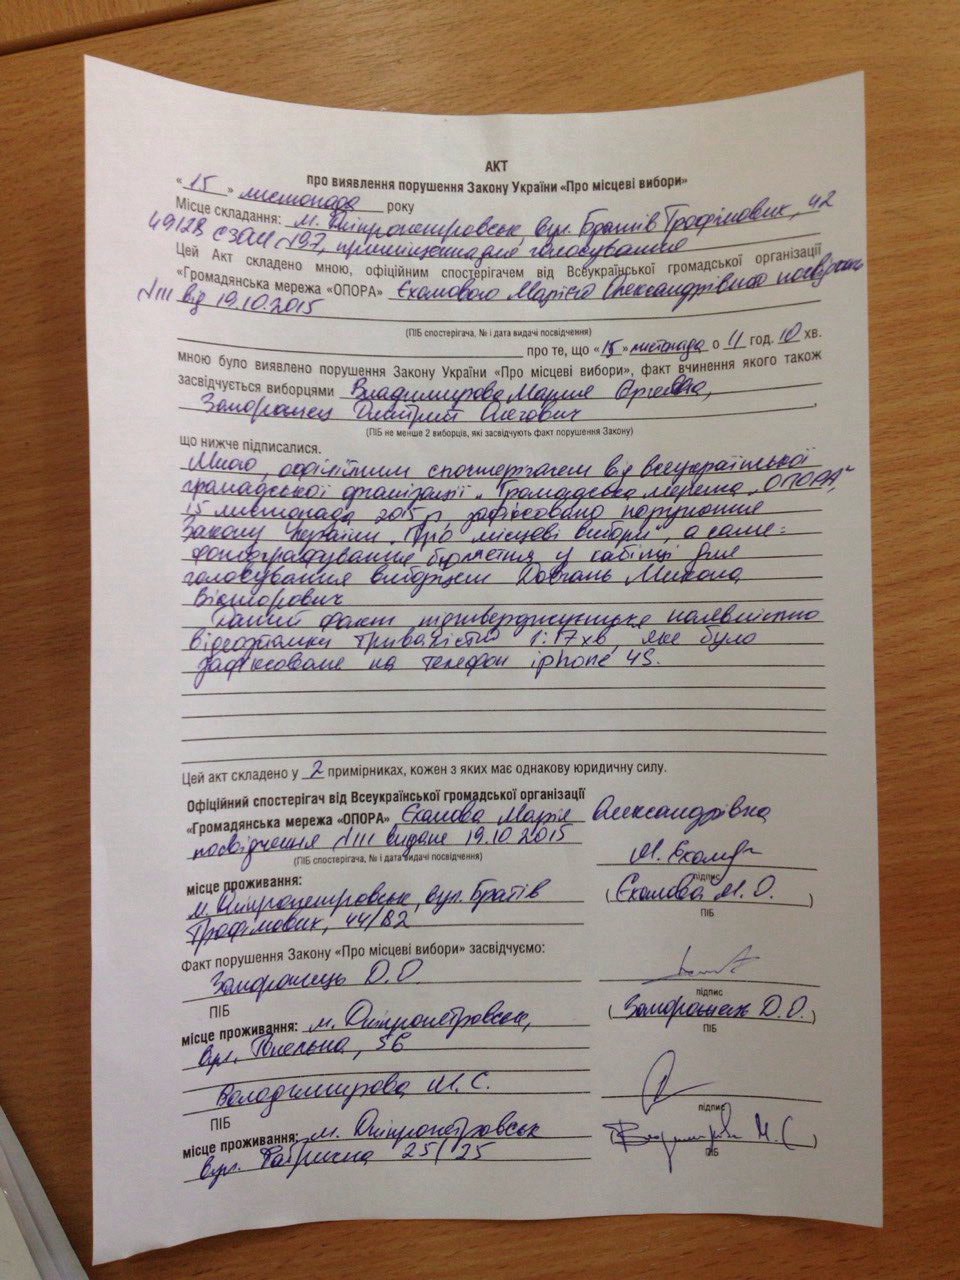 АКТ
про виявлення порушення Закону України «Про місцеві вибори»
« 15 » листопада року
Місце складання: м. Дніпропетровськ, вул. Братів Трофімових, 42
49128 СЗОШ №97, приміщення для голосування
Цей Акт складено мною, офіційним спостерігачем від Всеукраїнської громадської організації
«Громадянська мережа «ОПОРА» Єхамовою Марією Олександрівною посвідчення
№111 від 19.10.2015
(ПІБ спостерігача, № і дата видачі посвідчення)
про те, що « 15 » листопада о 11 год. 10 хв.
мною було виявлено порушення Закону України «Про місцеві вибори», факт вчинення якого також
засвідчується виборцями Владимирова Мария
Дмитрий Олегович
(ПІБ не менше 2 виборців, які засвідчують факт порушення Закону)
що нижче підписалися.
Мною, офіційним спостерігачем від всеукраїнської
громадської організації „Громадська мережа „ОПОРА",
15 листопада 2015р. зафіксовано порушення
Закону України „Про місцеві вибори", а саме:
фотографування бюлетня у кабінці для
голосування виборцем Довгань Микола
Вікторович
Даний факт підтверджується наявністю
відеозйомки тривалістю 1:17хв, яке було
зафіксоване на телефон iphone 4S.
Цей акт складено у 2 примірниках, кожен з яких має однакову юридичну силу.
Офіційний спостерігач від Всеукраїнської громадської організації
«Громадянська мережа «ОПОРА» Єхамова Марія Олександрівна
посвідчення №111 видане 19.10.2015
(ПІБ спостерігача, № і дата видачі посвідчення)
підпис
місце проживання:
(Єхамова М.О.)
ПІБ
м. Дніпропетровськ, вул. Братів
Трофімових, 44/82
Факт порушення Закону «Про місцеві вибори» засвідчуємо:
Д.О.
ПІБ
підпис
Д.О.
ПІБ
місце проживання: м. Дніпропетровськ,
вул. 56
Володимирова М.С.
ПІБ
підпис
місце проживання: м. Дніпропетровськ
М.С
ПІБ
вул. Фабрична 25/25